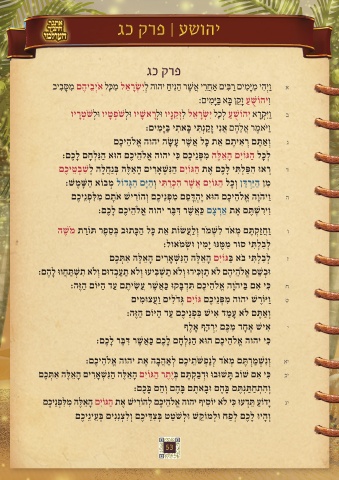 יהושע | פרק כג
פרק כג
א וַיְהִי מִיָּמִים רַבִּים אַחֲרֵי אֲשֶׁר הֵנִיחַ יהוה לְיִשְׂרָאֵל מִכָּל אֹיְבֵיהֶם מִסָּבִיב
וִיהוֹשֻׁעַ זָקֵן בָּא בַּיָּמִים:
ב וַיִּקְרָא יְהוֹשֻׁעַ לְכָל יִשְׂרָאֵל לִזְקֵנָיו וּלְרָאשָׁיו וּלְשֹׁפְטָיו וּלְשֹׁטְרָיו
וַיֹּאמֶר אֲלֵהֶם אֲנִי זָקַנְתִּי בָּאתִי בַּיָּמִים:
ג וְאַתֶּם רְאִיתֶם אֵת כָּל אֲשֶׁר עָשָׂה יהוה אֱלֹהֵיכֶם
לְכָל הַגּוֹיִם הָאֵלֶּה מִפְּנֵיכֶם כִּי יהוה אֱלֹהֵיכֶם הוּא הַנִּלְחָם לָכֶם:
ד רְאוּ הִפַּלְתִּי לָכֶם אֶת הַגּוֹיִם הַנִּשְׁאָרִים הָאֵלֶּה בְּנַחֲלָה לְשִׁבְטֵיכֶם
מִן הַיַּרְדֵּן וְכָל הַגּוֹיִם אֲשֶׁר הִכְרַתִּי וְהַיָּם הַגָּדוֹל מְבוֹא הַשָּׁמֶשׁ:
ה וַיהוה אֱלֹהֵיכֶם הוּא יֶהְדֳּפֵם מִפְּנֵיכֶם וְהוֹרִישׁ אֹתָם מִלִּפְנֵיכֶם
וִירִשְׁתֶּם אֶת אַרְצָם כַּאֲשֶׁר דִּבֶּר יהוה אֱלֹהֵיכֶם לָכֶם:
ו וַחֲזַקְתֶּם מְאֹד לִשְׁמֹר וְלַעֲשׂוֹת אֵת כָּל הַכָּתוּב בְּסֵפֶר תּוֹרַת מֹשֶׁה
לְבִלְתִּי סוּר מִמֶּנּוּ יָמִין וּשְׂמֹאול:
ז לְבִלְתִּי בֹא בַּגּוֹיִם הָאֵלֶּה הַנִּשְׁאָרִים הָאֵלֶּה אִתְּכֶם
וּבְשֵׁם אֱלֹהֵיהֶם לֹא תַזְכִּירוּ וְלֹא תַשְׁבִּיעוּ וְלֹא תַעַבְדוּם וְלֹא תִשְׁתַּחֲווּ לָהֶם:
ח כִּי אִם בַּיהוה אֱלֹהֵיכֶם תִּדְבָּקוּ כַּאֲשֶׁר עֲשִׂיתֶם עַד הַיּוֹם הַזֶּה:
ט וַיּוֹרֶשׁ יהוה מִפְּנֵיכֶם גּוֹיִם גְּדֹלִים וַעֲצוּמִים
וְאַתֶּם לֹא עָמַד אִישׁ בִּפְנֵיכֶם עַד הַיּוֹם הַזֶּה:
י אִישׁ אֶחָד מִכֶּם יִרְדָּף אָלֶף
כִּי יהוה אֱלֹהֵיכֶם הוּא הַנִּלְחָם לָכֶם כַּאֲשֶׁר דִּבֶּר לָכֶם:
יא וְנִשְׁמַרְתֶּם מְאֹד לְנַפְשֹׁתֵיכֶם לְאַהֲבָה אֶת יהוה אֱלֹהֵיכֶם:
יב כִּי אִם שׁוֹב תָּשׁוּבוּ וּדְבַקְתֶּם בְּיֶתֶר הַגּוֹיִם הָאֵלֶּה הַנִּשְׁאָרִים הָאֵלֶּה אִתְּכֶם
וְהִתְחַתַּנְתֶּם בָּהֶם וּבָאתֶם בָּהֶם וְהֵם בָּכֶם:
יג יָדוֹעַ תֵּדְעוּ כִּי לֹא יוֹסִיף יהוה אֱלֹהֵיכֶם לְהוֹרִישׁ אֶת הַגּוֹיִם הָאֵלֶּה מִלִּפְנֵיכֶם
וְהָיוּ לָכֶם לְפַח וּלְמוֹקֵשׁ וּלְשֹׁטֵט בְּצִדֵּיכֶם וְלִצְנִנִים בְּעֵינֵיכֶם
53